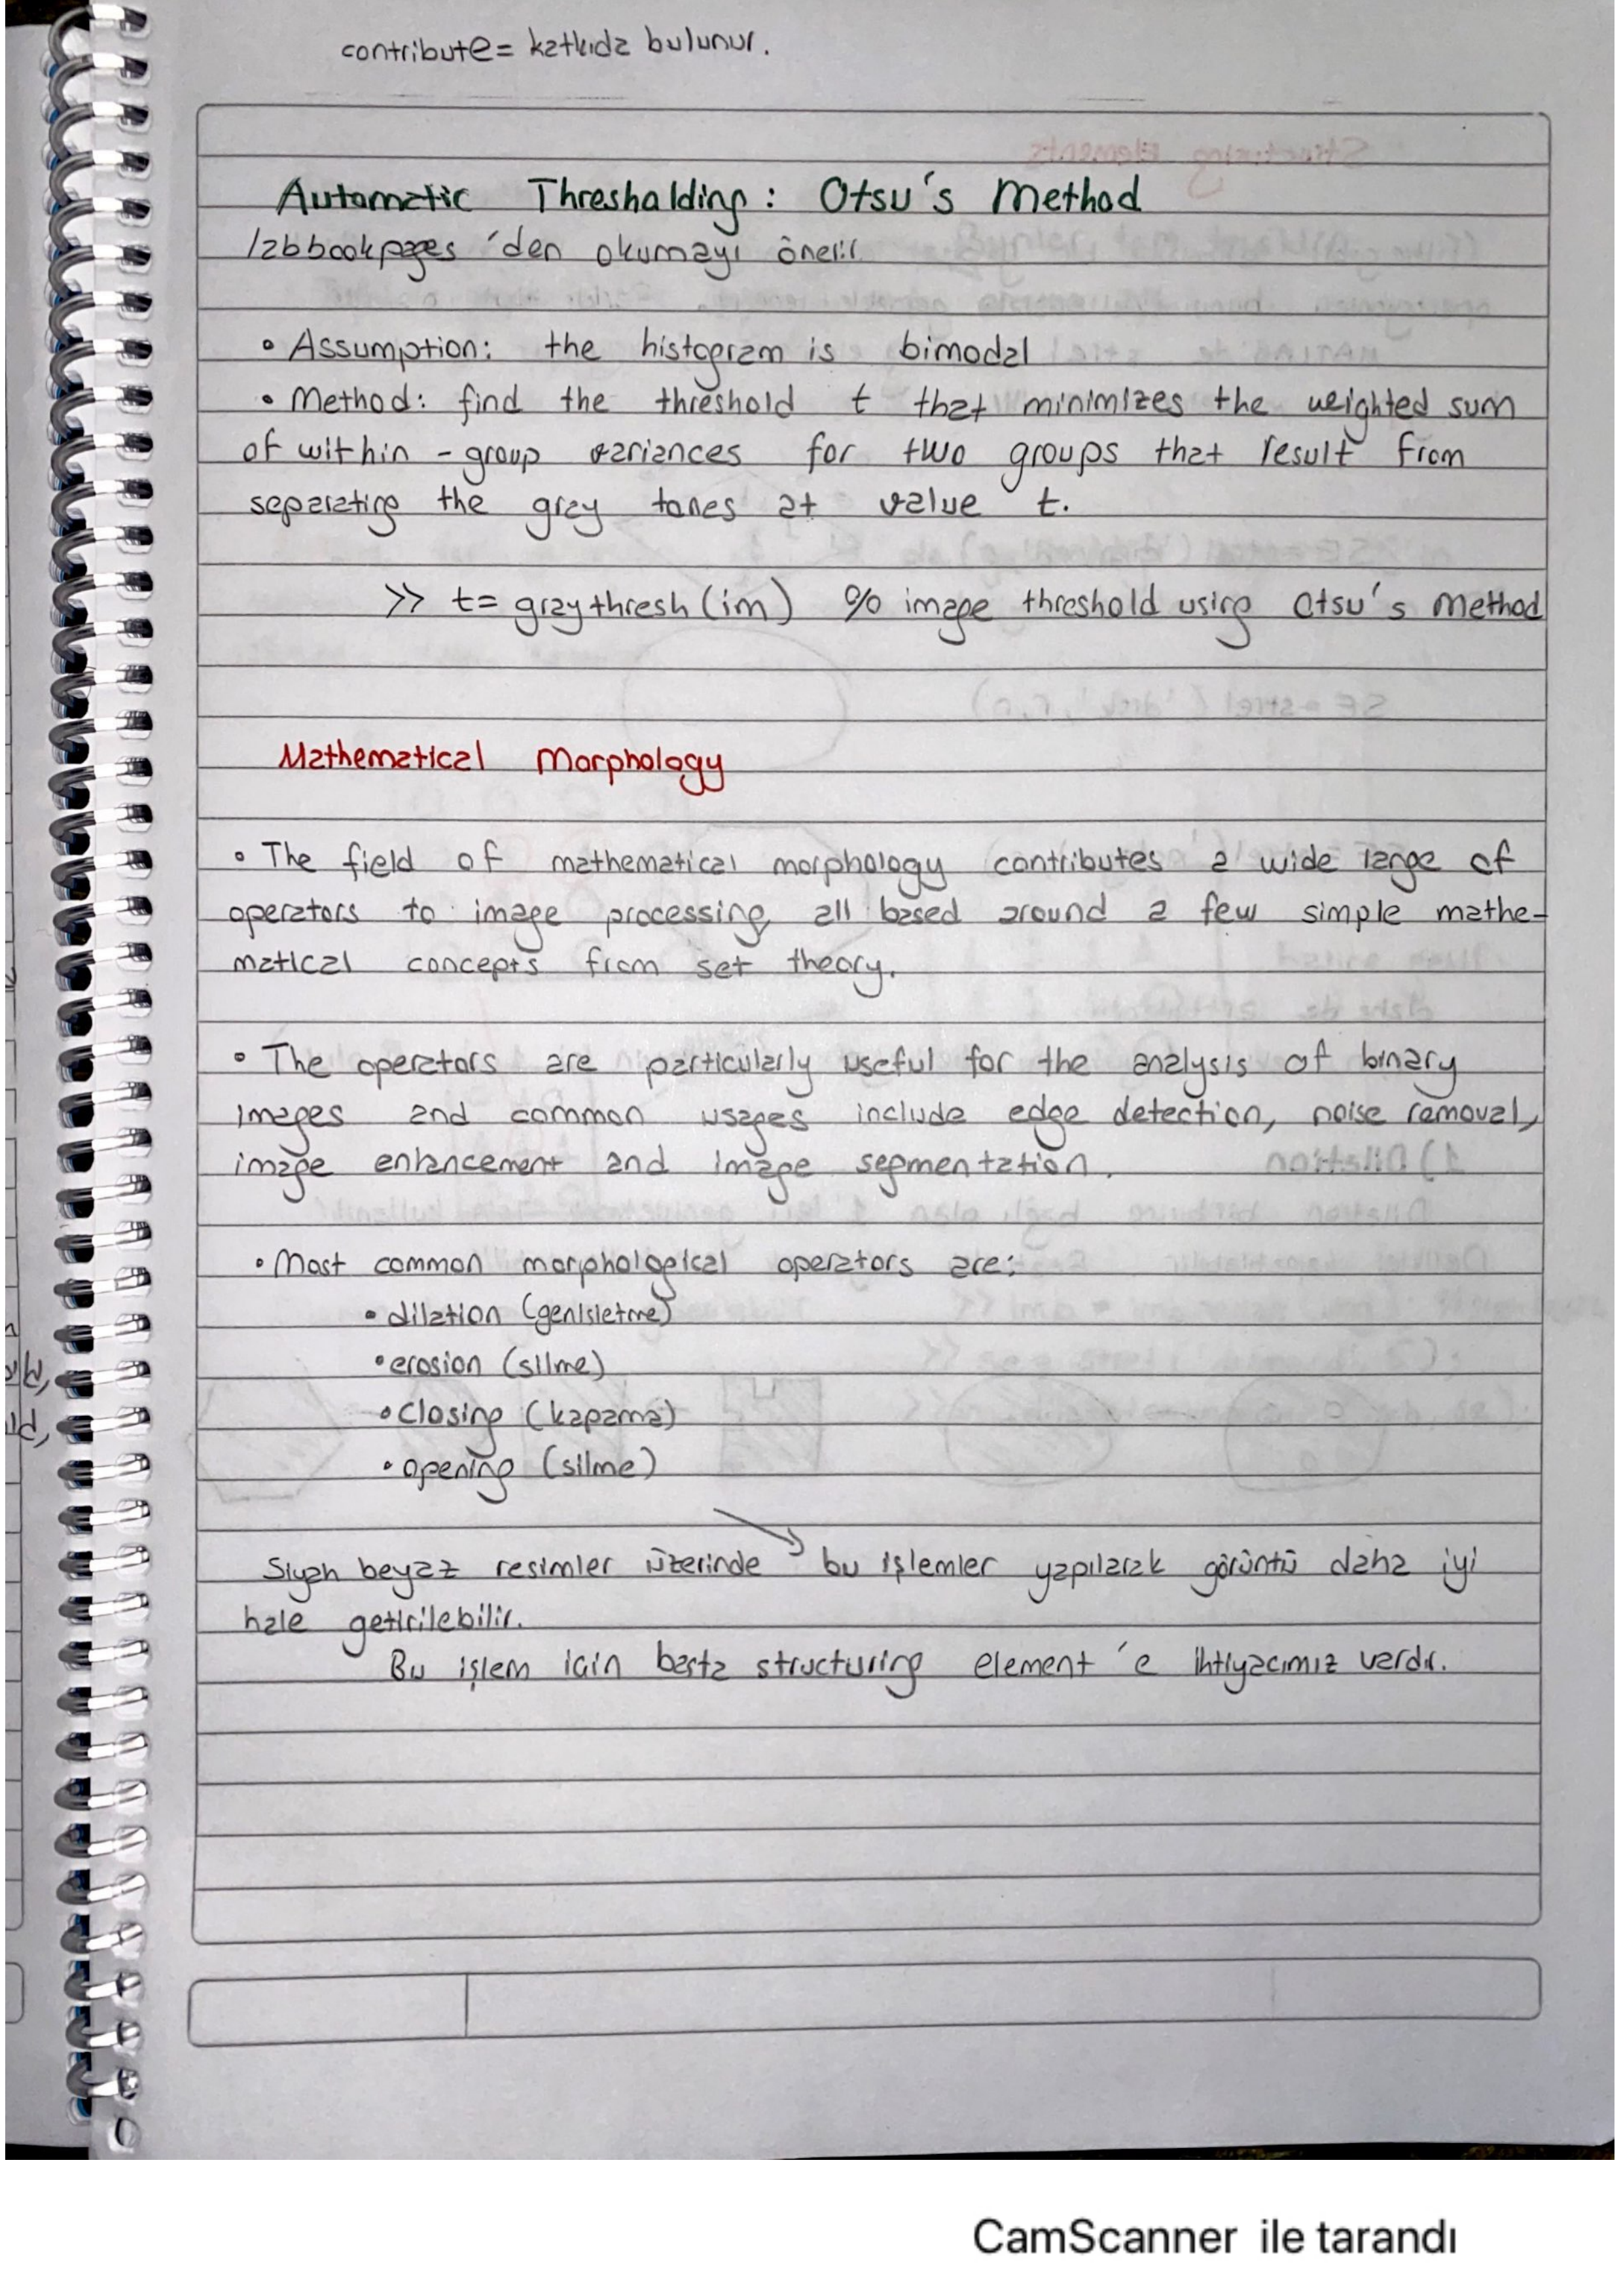 contribute = katkıda bulunur.
Automatic Thresholding: Otsu's Method
labbookpages 'den okumayı önerir
• Assumption: the histogram is bimodal
• Method: find the threshold t that minimizes the weighted sum
of within-group variances for two groups that result from
separating the gray tones at value t.
>> t= graythresh(im) % image threshold using Otsu's Method
Mathematical Morphology
• The field of mathematical morphology contributes a wide range of
operators to image processing, all based around a few simple mathe-
matical concepts from set theory.
• The operators are particularly useful for the analysis of binary
images and common usages include edge detection, noise removal,
image enhancement and image segmentation.
• Most common morphological operators are:
• dilation (genisletme)
• erosion (silme)
• closing (kapama)
• opening (silme)
Siyah beyaz resimler üzerinde bu işlemler yapılarak görüntü daha iyi
hale getirilebilir.
Bu işlem için basta structuring element 'e ihtiyacımız vardır.
CamScanner ile tarandı